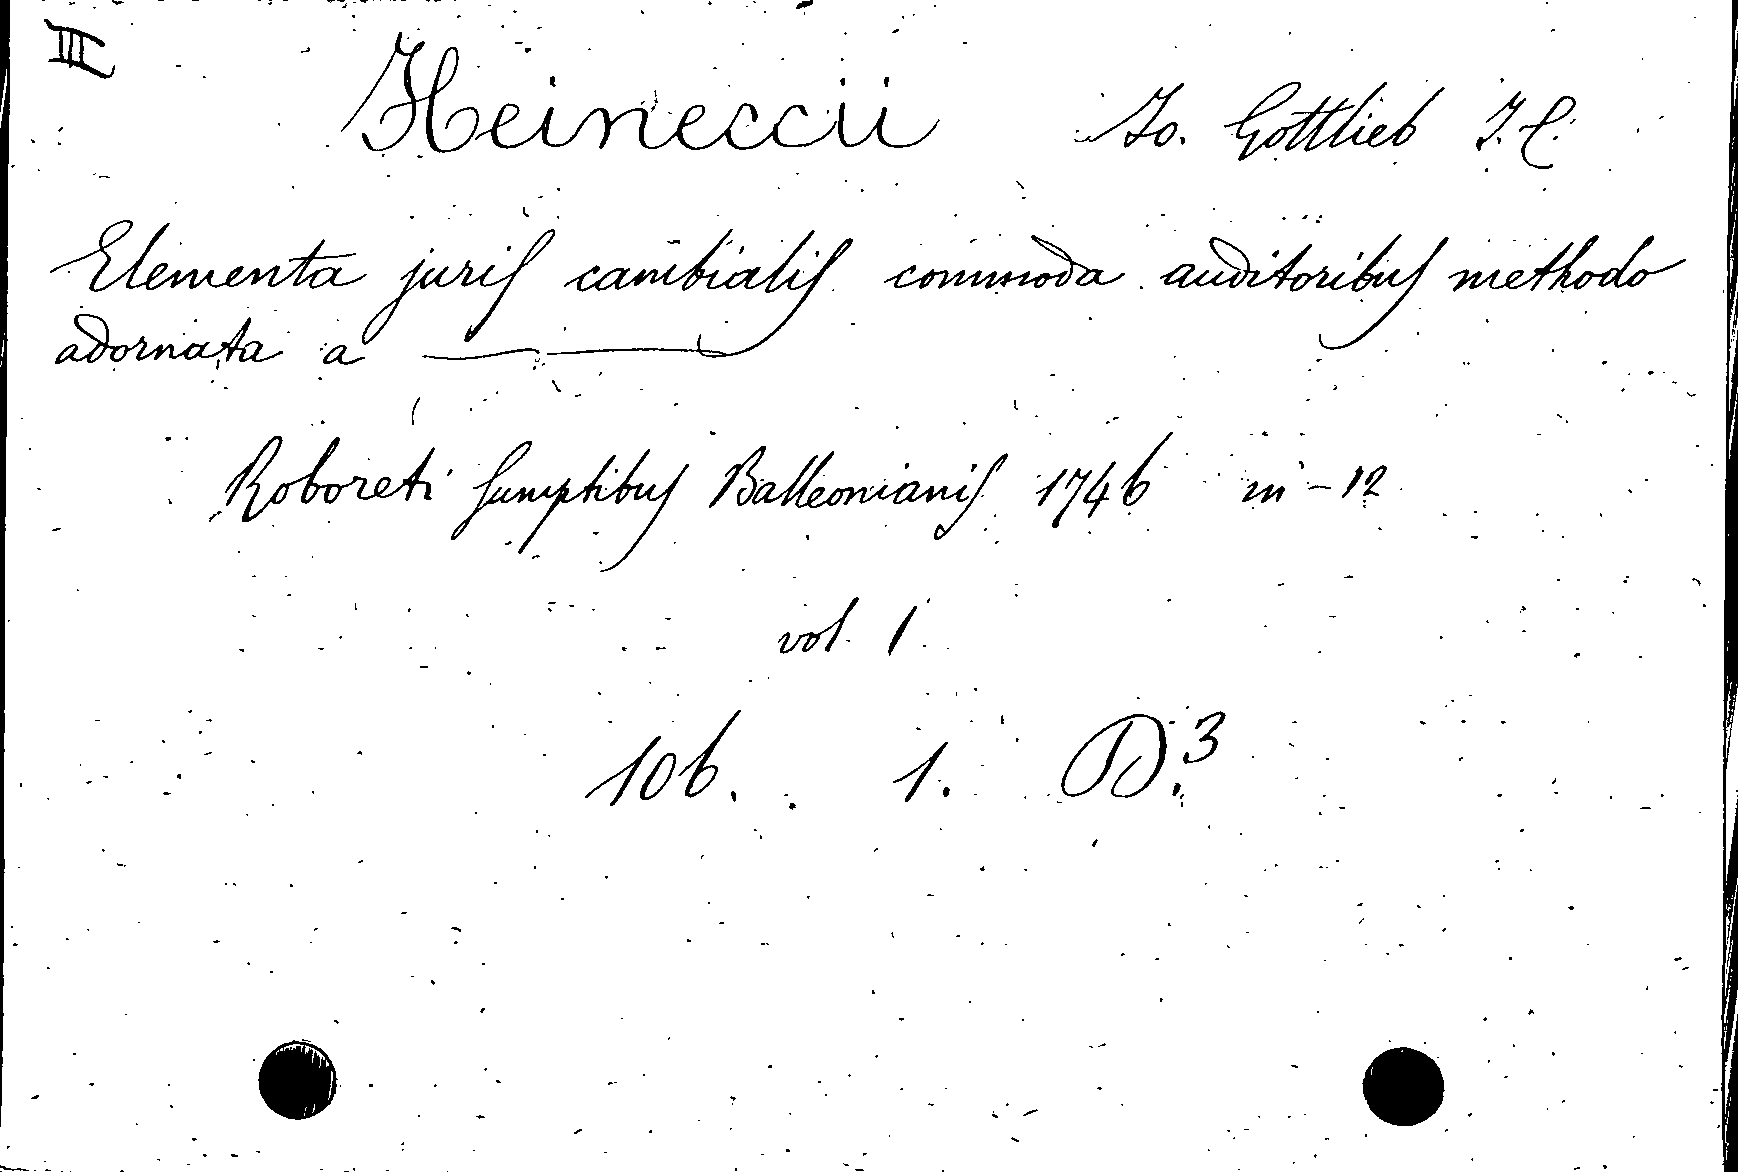 III
Heineccii Jo. Gottlieb J. C.
Elementa juris cambialis commoda auditoribus methodo
adornata a ———
Roboreti sumptibus Balleonianis 1746 in-12
vol. 1
106. 1. D.3